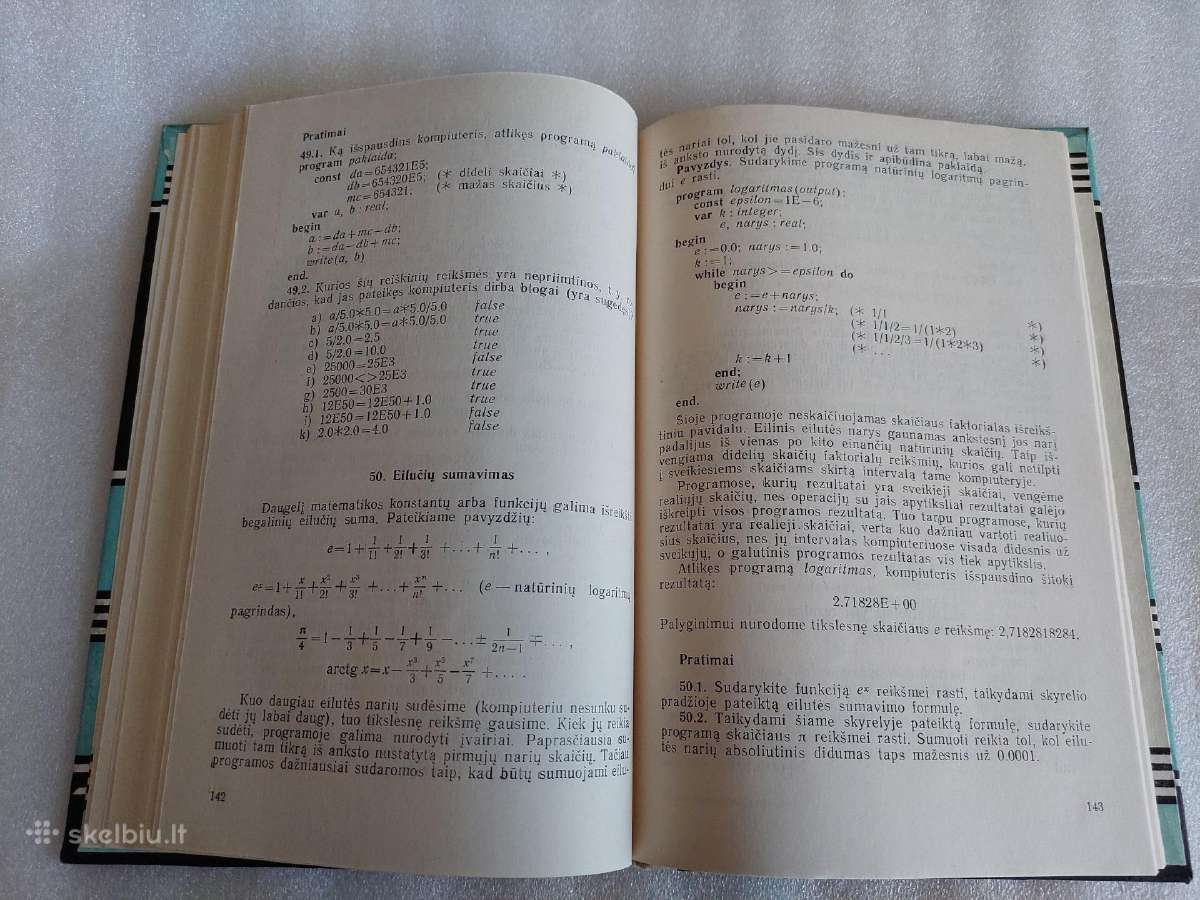 Pratimai
49.1. Ką išspausdins kompiuteris, atlikęs programą
program paklaida;
const da=654321E5;
db=654320E5; (* dideli skaičiai *)
mc=654321; (* mažas skaičius *)
var a, b : real;
begin
a:=da+mc-db;
b:=da-db+mc;
write(a, b)
end.
49.2. Kurios šių reiškinių reikšmės yra nepriimtinos, t. y.
dančios, kad jas pateikęs kompiuteris dirba blogai (yra
a) a/5.0*5.0=a*5.0/5.0 false
b) a/5.0*5.0=a*5.0/5.0 true
c) 5/2.0=2.5 true
d) 5/2.0=10.0 true
e) 25000=25E3 false
f) 25000<>25E3 true
g) 2500=30E3 true
h) 12E50=12E50+1.0 true
j) 12E50=12E50+1.0 false
k) 2.0*2.0=4.0 false
50. Eilučių sumavimas
Daugelį matematikos konstantų arba funkcijų galima išreikšti
begalinių eilučių suma. Pateikiame pavyzdžių:
e=1+1/1!+1/2!+1/3!+...+1/n!+...,
eˣ=1+x/1!+x²/2!+x³/3!+...+xⁿ/n!+... (e — natūrinių logaritmų
pagrindas),
π/4=1-1/3+1/5-1/7+1/9-...±1/2n-1∓...,
arctg x=x-x³/3+x⁵/5-x⁷/7+....
Kuo daugiau eilutės narių sudėsime (kompiuteriu nesunku su-
dėti jų labai daug), tuo tikslesnę reikšmę gausime. Kiek jų reikia
sudėti, programoje galima nurodyti įvairiai. Paprasčiausia su-
muoti tam tikrą iš anksto nustatytą pirmųjų narių skaičių. Tačiau
programos dažniausiai sudaromos taip, kad būtų sumuojami eilu-
142
tės nariai tol, kol jie pasidaro mažesni už tam tikrą, labai mažą,
iš anksto nurodytą dydį. Šis dydis ir apibūdina paklaidą.
Pavyzdys. Sudarykime programą natūrinių logaritmų pagrin-
dui e rasti.
program logaritmas(output);
const epsilon=1E-6;
var k : integer;
e, narys : real;
begin
e:=0.0; narys:=1.0;
k:=1;
while narys>=epsilon do
begin
e:=e+narys;
narys:=narys/k; (* 1/1 *)
(* 1/1/2=1/(1*2) *)
(* 1/1/2/3=1/(1*2*3) *)
(* ... *)
k:=k+1
end;
write(e)
end.
Šioje programoje neskaičiuojamas skaičiaus faktorialas išreikš-
tiniu pavidalu. Eilinis eilutės narys gaunamas ankstesnį jos narį
padalijus iš vienas po kito einančių natūrinių skaičių. Taip iš-
vengiama didelių skaičių faktorialų reikšmių, kurios gali netilpti
į sveikiesiems skaičiams skirtą intervalą tame kompiuteryje.
Programose, kurių rezultatai yra sveikieji skaičiai, vengėme
realiųjų skaičių, nes operacijų su jais apytiksliai rezultatai galėjo
iškreipti visos programos rezultatą. Tuo tarpu programose, kurių
rezultatai yra realieji skaičiai, verta kuo dažniau vartoti realiuo-
sius skaičius, nes jų intervalas kompiuteriuose visada didesnis už
sveikųjų, o galutinis programos rezultatas vis tiek apytikslis.
Atlikęs programą logaritmas, kompiuteris išspausdino šitokį
rezultatą:
2.71828E+00
Palyginimui nurodome tikslesnę skaičiaus e reikšmę: 2,7182818284.
Pratimai
50.1. Sudarykite funkciją eˣ reikšmei rasti, taikydami skyrelio
pradžioje pateiktą eilutės sumavimo formulę.
50.2. Taikydami šiame skyrelyje pateiktą formulę, sudarykite
programą skaičiaus π reikšmei rasti. Sumuoti reikia tol, kol eilu-
tės narių absoliutinis didumas taps mažesnis už 0.0001.
143
skelbiu.lt